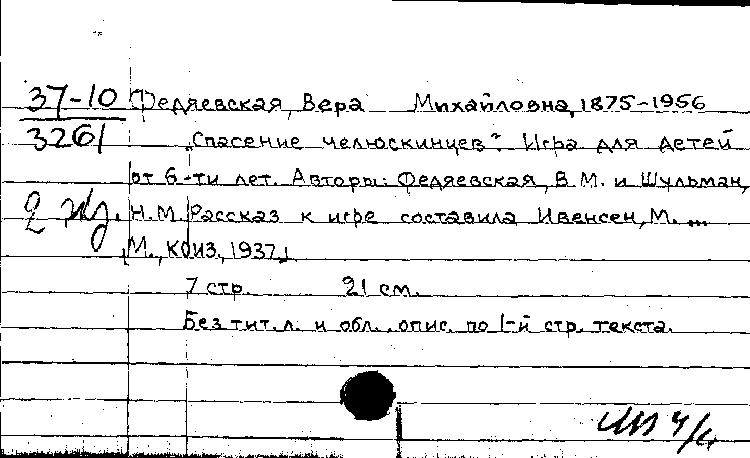 37-10 Федяевская, Вера Михайловна, 1875-1956
3261 „Спасение челюскинцев“. Игра для детей
от 6-ти лет. Авторы: Федяевская, В.М. и Шульман,
2 экз. Н.М. Рассказ к игре составила Ивенсен, М. ...
М., КОИЗ, 1937.
7 стр. 21 см.
Без тит. л. и обл., опис. по 1-й стр. текста.